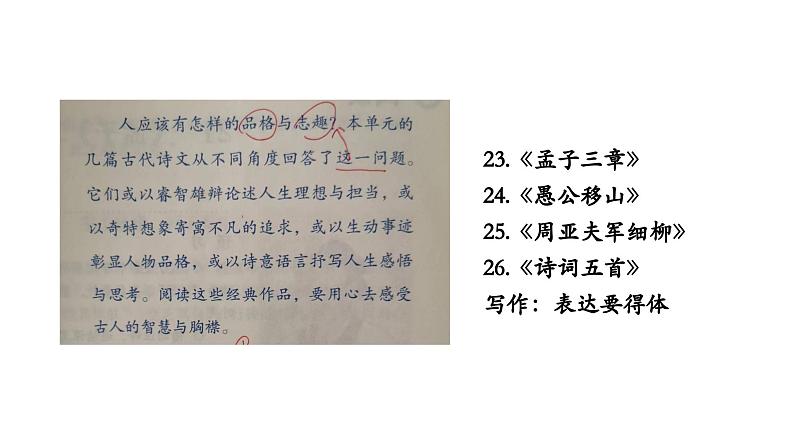 人应该有怎样的品格与志趣？本单元的
几篇古代诗文从不同角度回答了这一问题。
它们或以睿智雄辩论述人生理想与担当，或
以奇特想象寄寓不凡的追求，或以生动事迹
彰显人物品格，或以诗意语言抒写人生感悟
与思考。阅读这些经典作品，要用心去感受
古人的智慧与胸襟。
23.《孟子三章》
24.《愚公移山》
25.《周亚夫军细柳》
26.《诗词五首》
写作：表达要得体